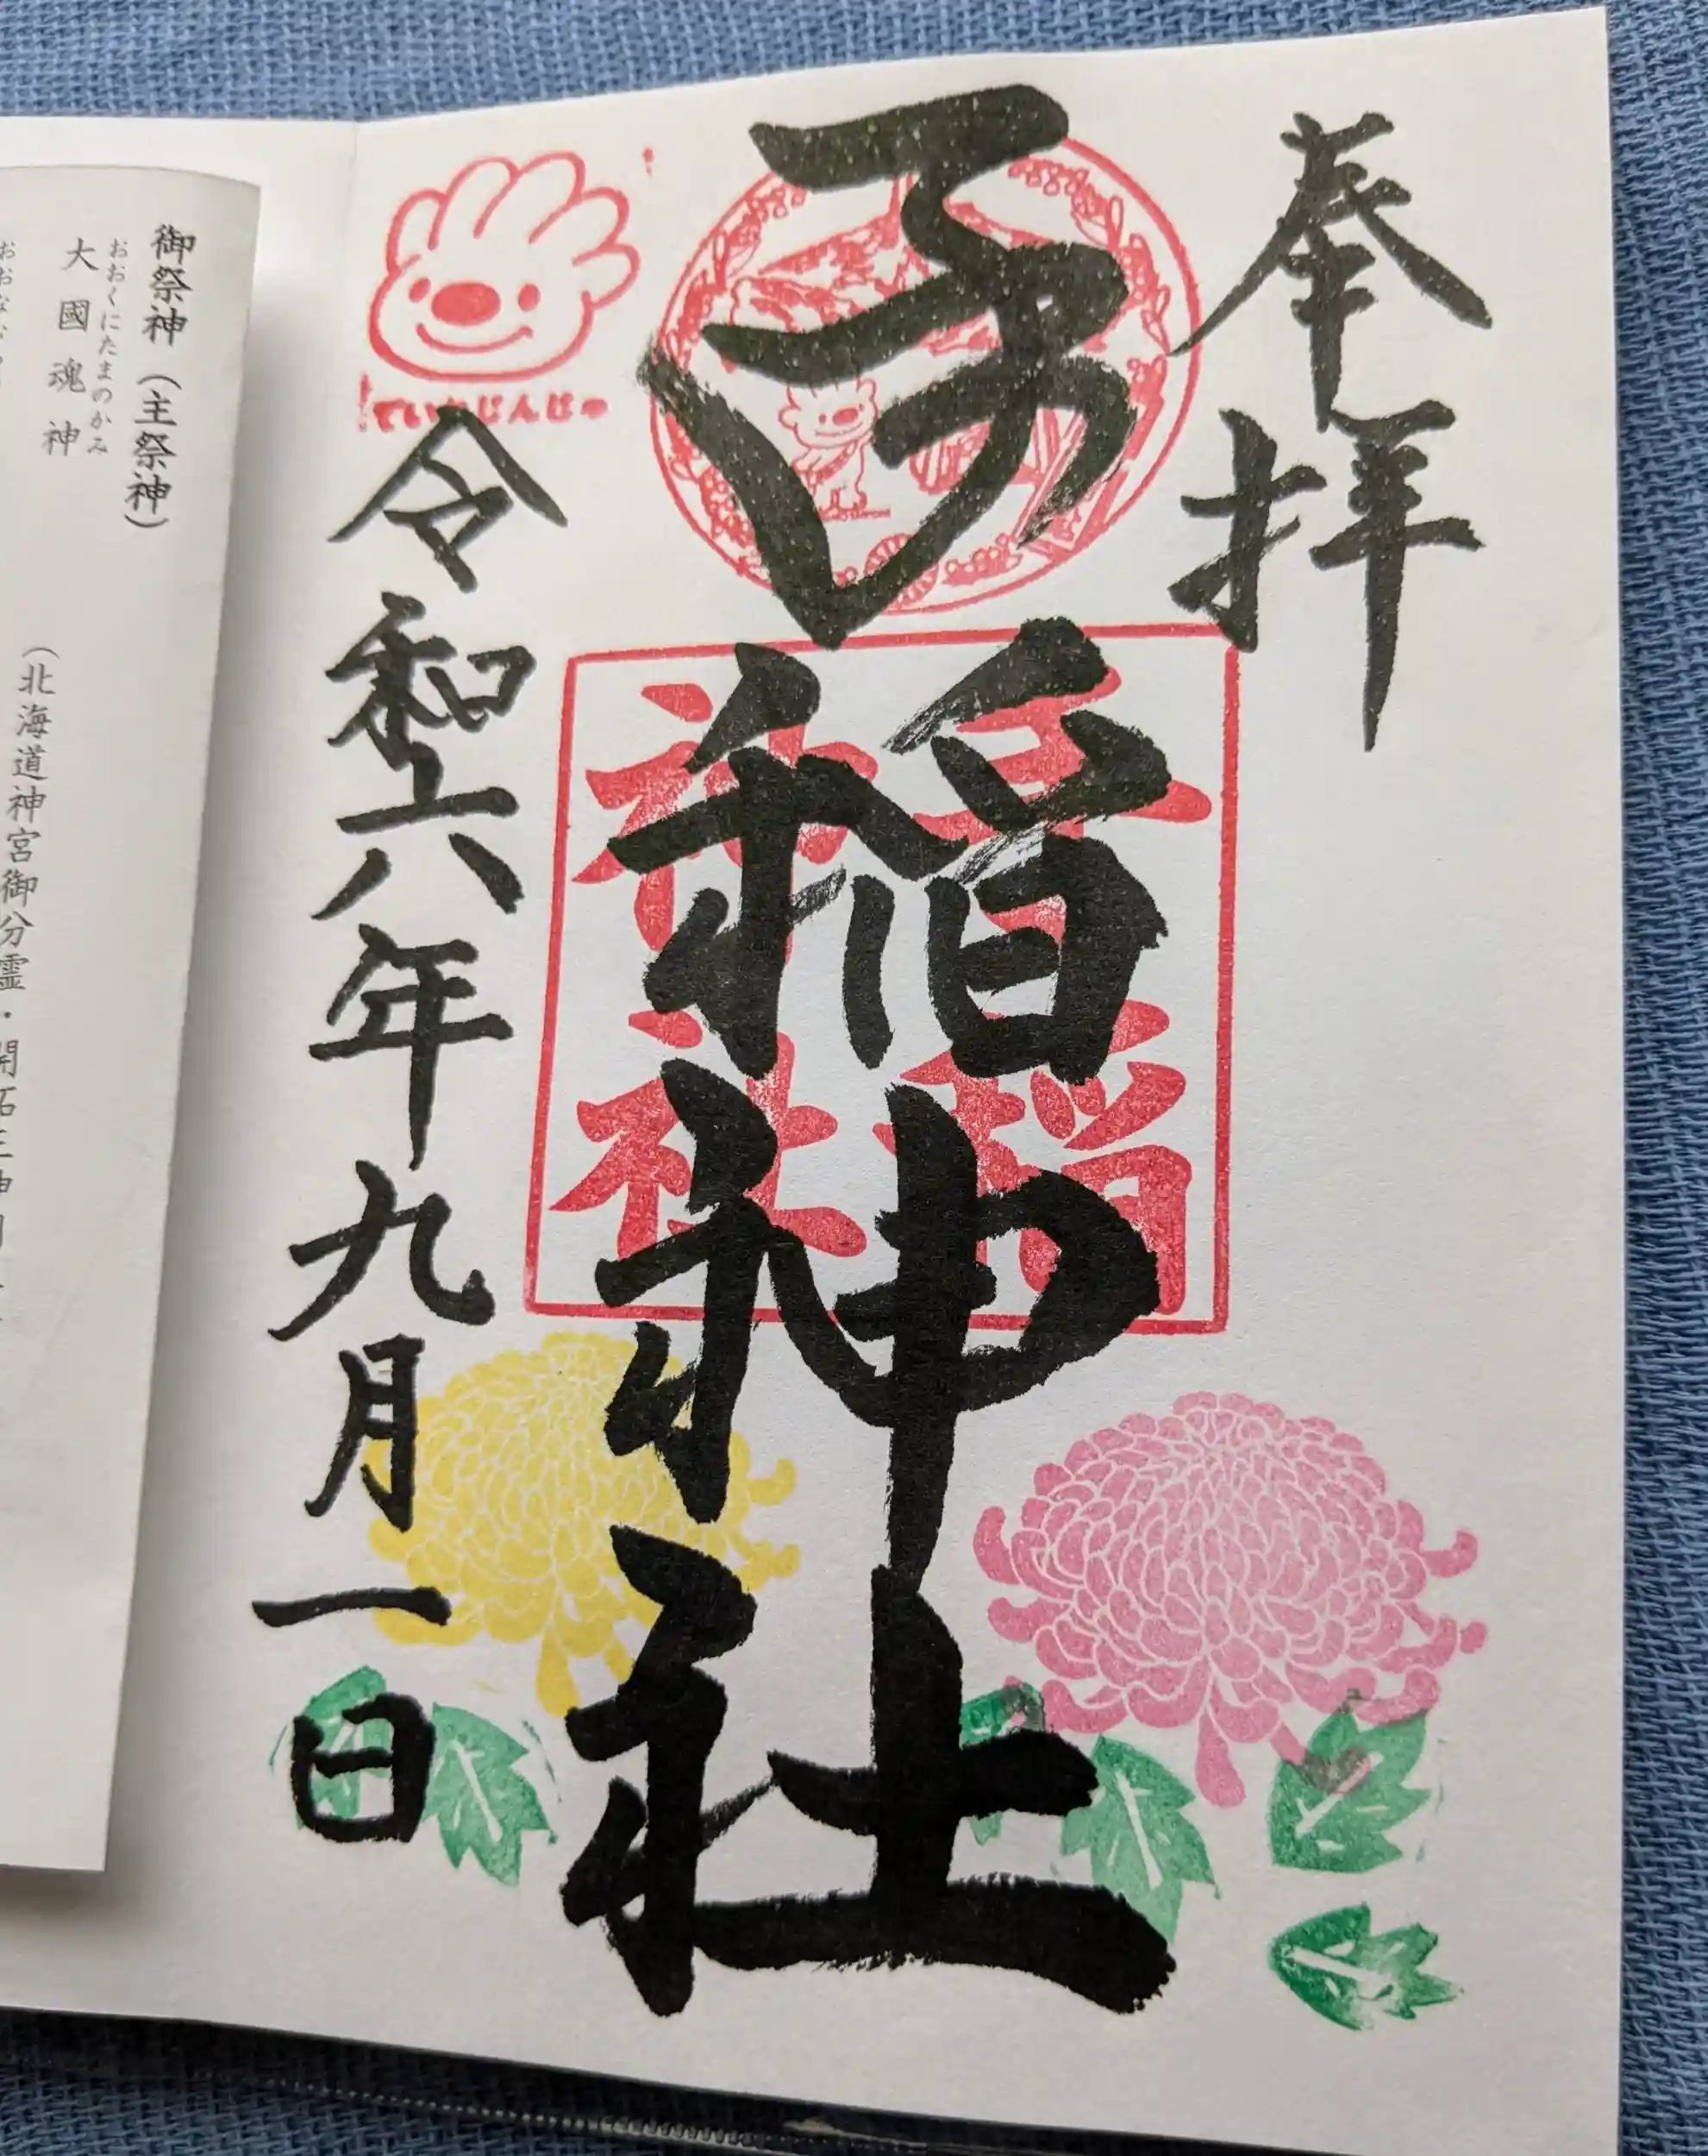 奉拝
手稲神社
手稲
神社
令和六年九月一日
ていねじんじゃ
御祭神（主祭神）
おおくにたまのかみ
大國魂神
（北海道神宮御分霊・開拓三神